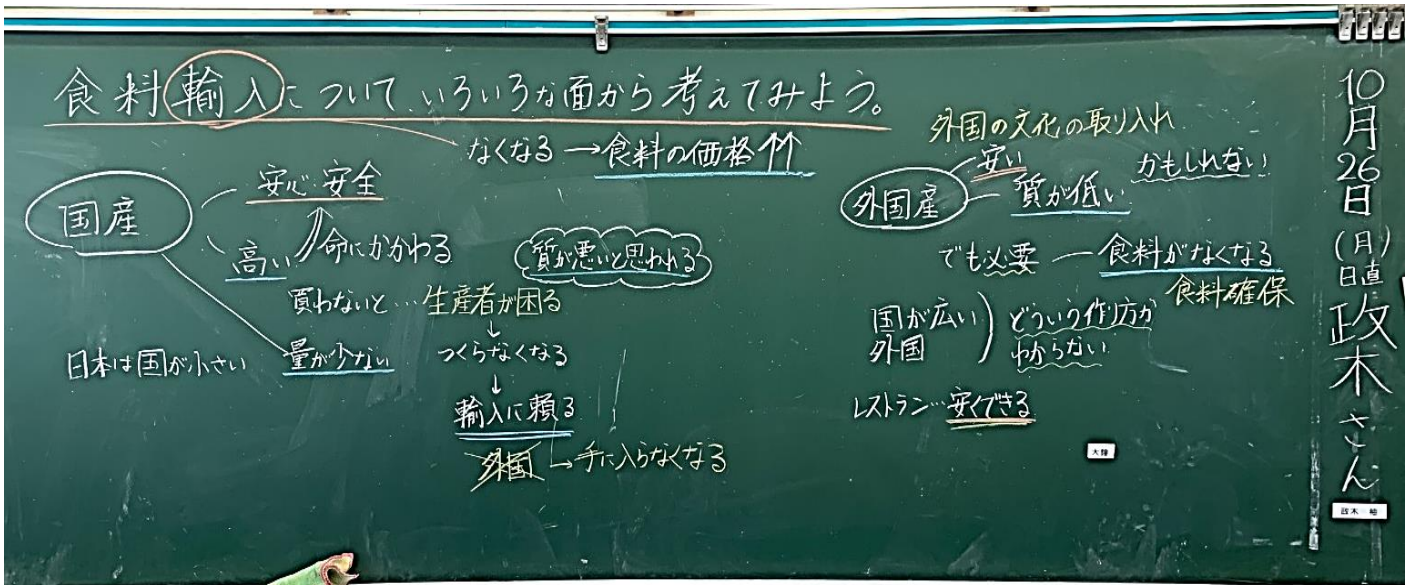 食料輸入について、いろいろな面から考えてみよう。
なくなる→食料の価格↑↑
国産
安心・安全
高い
命にかかわる
買わないと…生産者が困る
↓
つくらなくなる
↓
輸入に頼る
外国→手に入らなくなる
質が悪いと思われる
日本は国が小さい
量が少ない
外国の文化の取り入れ
外国産
安い
質が低い
かもしれない
でも必要―食料がなくなる
食料確保
国が広い
外国
どういう作り方か
わからない
レストラン…安くできる
10月26日(月)
日直
政木さん